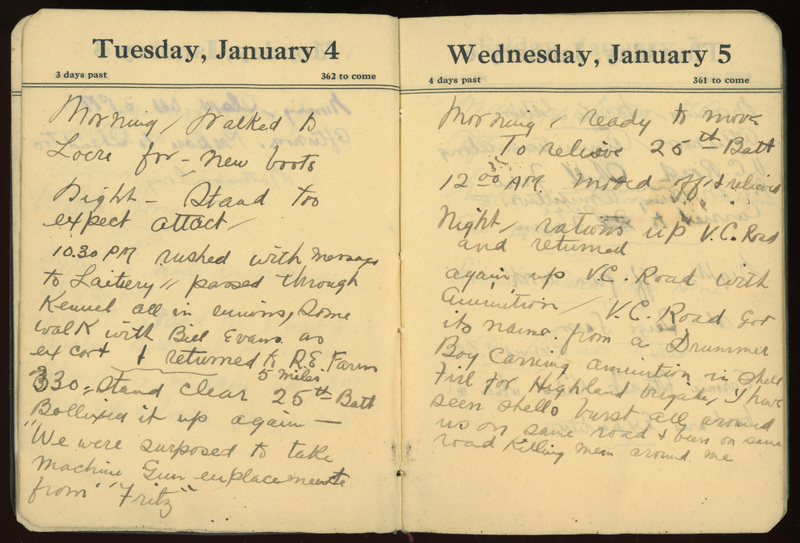 Tuesday, January 4
3 days past 362 to come
Morning / Walked to
Locre for - new boots
Night - Stand too
expect attack /
10.30 PM rushed with message
to Laitery // passed through
Kennel all in ruins, some
walk with Bill Evans as
excort & returned to R.E. Farm
5 miles
330 = Stand clear 25th Batt
Bollixed it up again -
"We were surposed to take
machine Gun enplacements
from "Fritz"
Wednesday, January 5
4 days past 361 to come
Morning / ready to move
To relieve 25th Batt
12 AM moved off & relieved
Night / rations up V.C. Road
and returned
again up V.C. Road with
Aminition / V.C. Road got
its name from a Drummer
Boy carring aminition in shell
Firl for Highland brigade, I have
seen shells burst all around
us on same road & been on same
road killing men around me